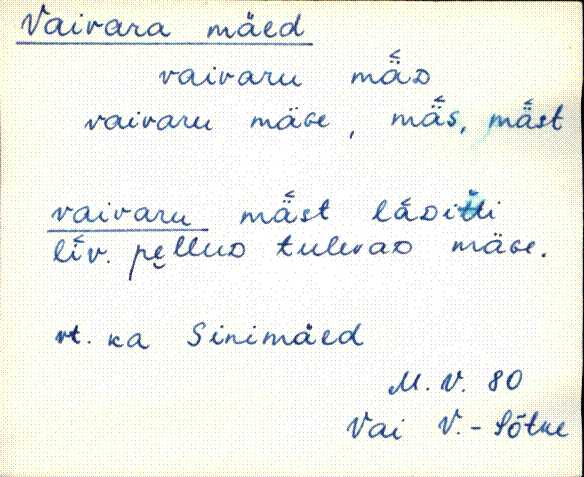 Vaivara mäed
vaivaru mä̆ᴅ
vaivaru mäɢe, mä̆s, mä̆st
vaivaru mä̆st lăᴅitti
lĭv. pe̮lluᴅ tulevaᴅ mäɢe.
vt. ka Sinimäed
M. V. 80
Vai V.-Sõtke